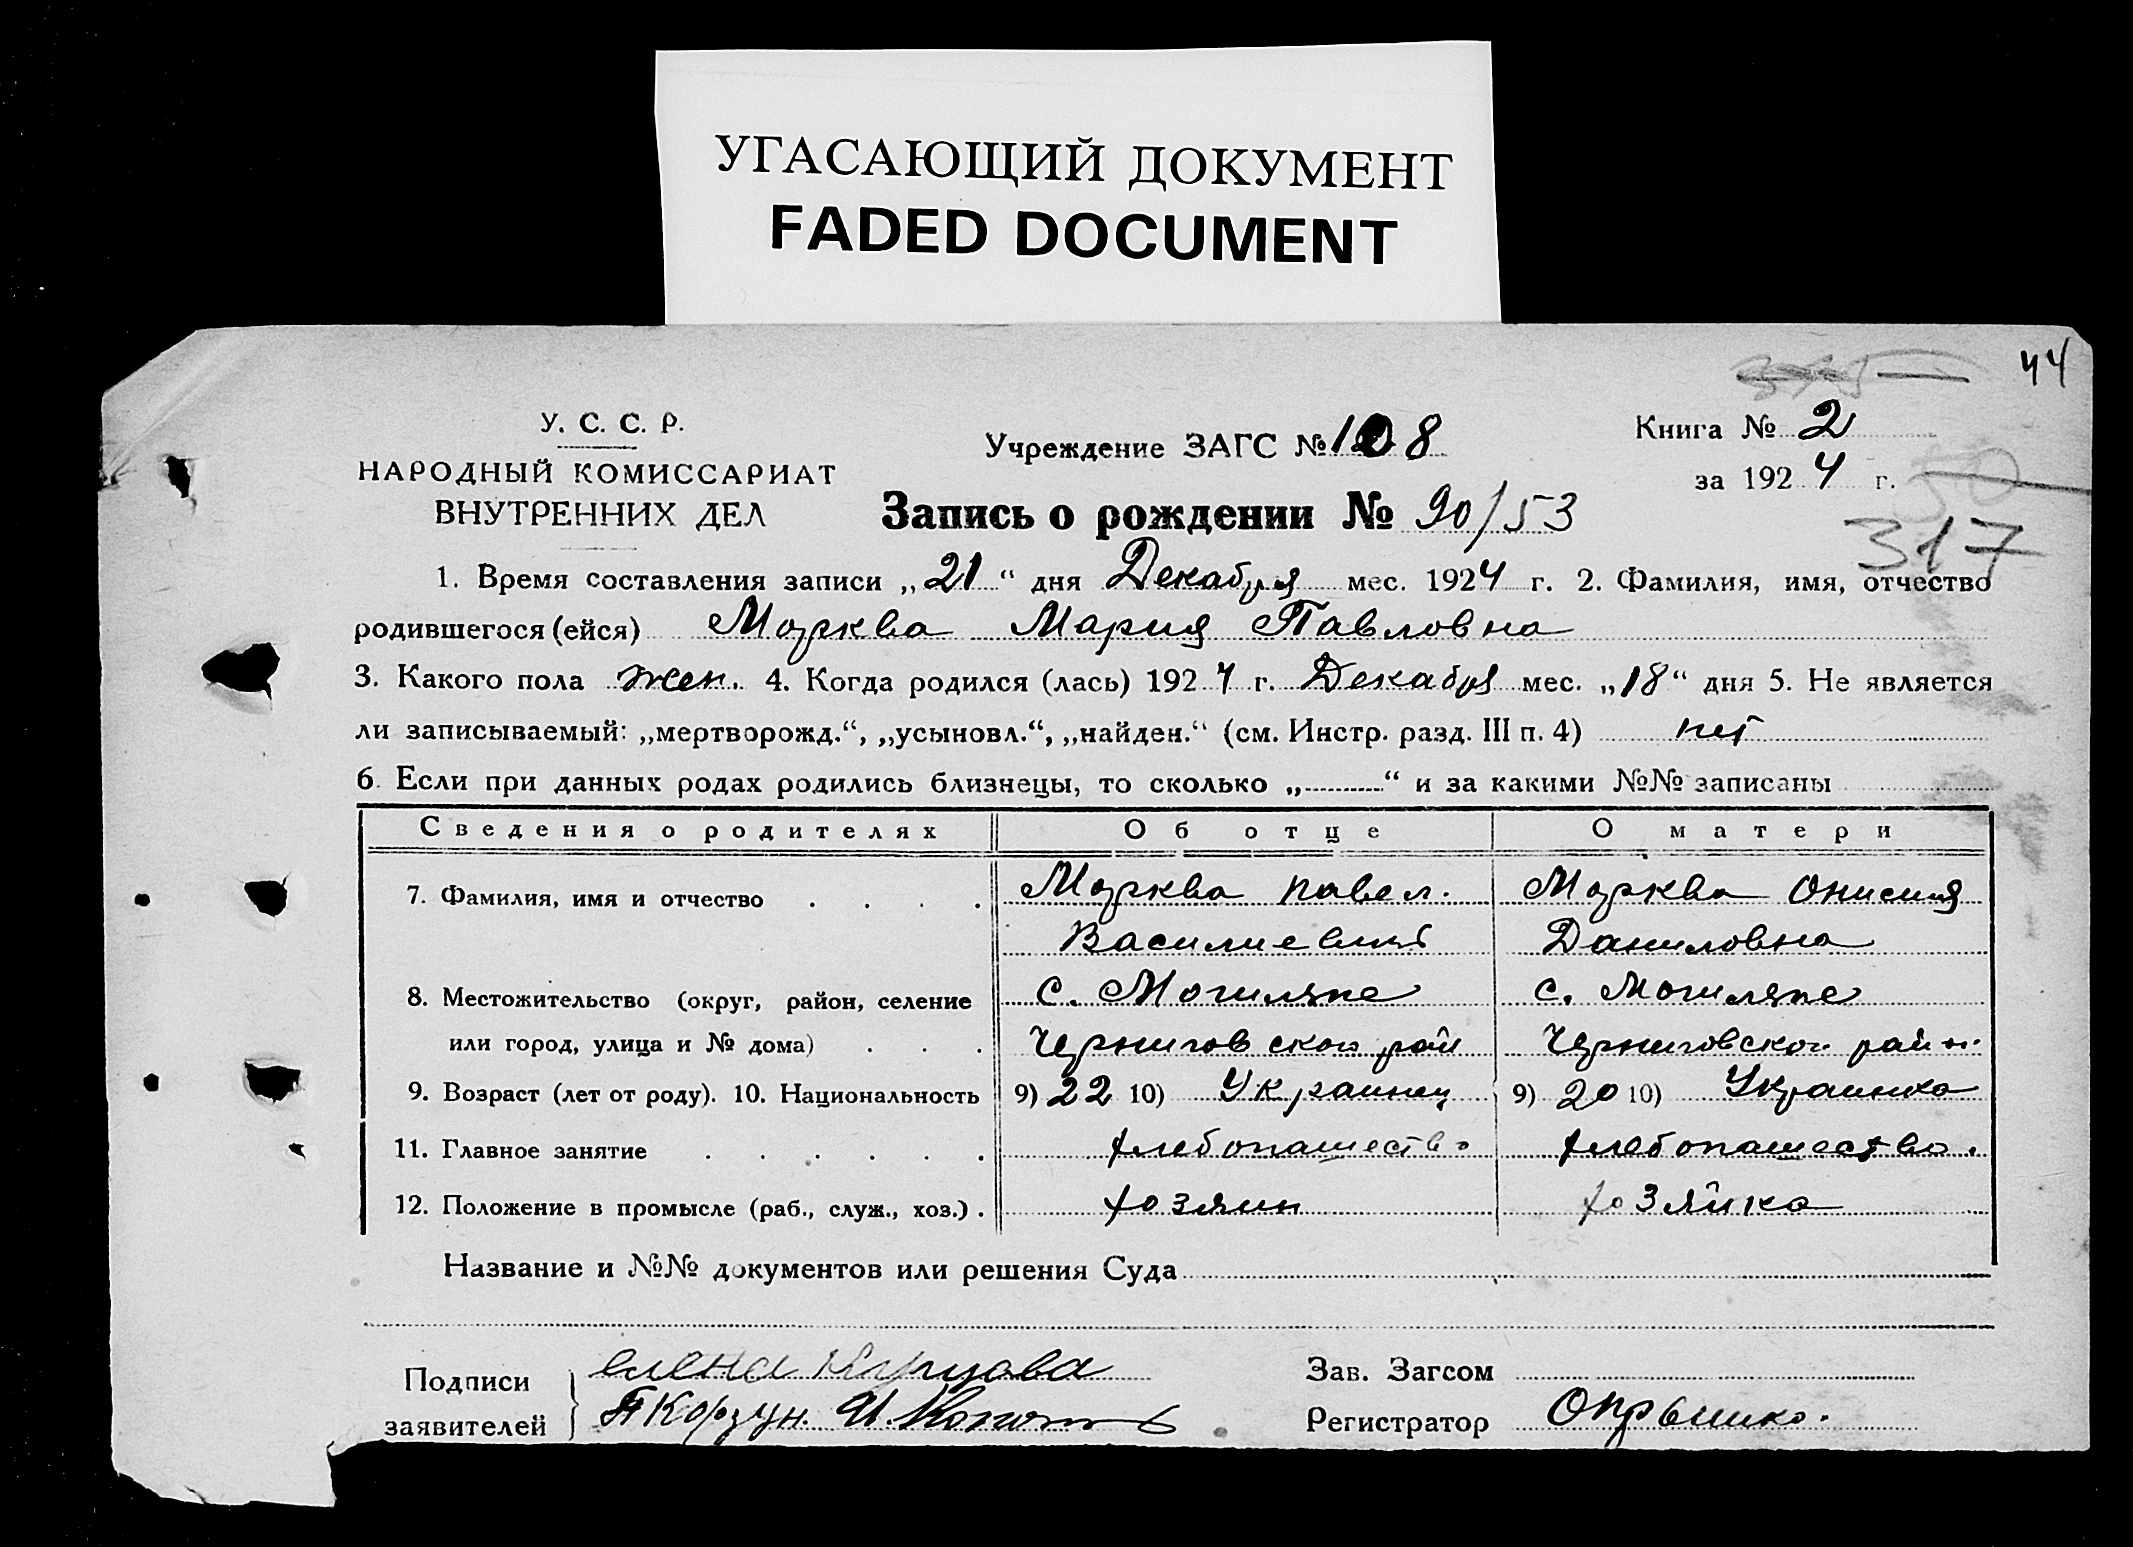 УГАСАЮЩИЙ ДОКУМЕНТ
FADED DOCUMENT
44
У. С. С. Р.
НАРОДНЫЙ КОМИССАРИАТ
ВНУТРЕННИХ ДЕЛ
Учреждение ЗАГС № 108
Книга № 2
за 1924 г.
Запись о рождении № 90/53
317
1. Время составления записи „21“ дня Декабря мес. 1924 г. 2. Фамилия, имя, отчество
родившегося (ейся) Морква Мария Павловна
3. Какого пола жен. 4. Когда родился (лась) 1924 г. Декабря мес. „18“ дня 5. Не является
ли записываемый: „мертворожд.“, „усыновл.“, „найден.“ (см. Инстр. разд. III п. 4) нет
6. Если при данных родах родились близнецы, то сколько „ “ и за какими №№ записаны
Сведения о родителях Об отце О матери
7. Фамилия, имя и отчество Морква Павел. Морква Онисия
Василиевич Даниловна
8. Местожительство (округ, район, селение с. Могиляне с. Могиляне
или город, улица и № дома) Черниговского рай Черниговского район.
9. Возраст (лет от роду). 10. Национальность 9) 22 10) Украинец 9) 20 10) Украинка
11. Главное занятие хлебопашество хлебопашество.
12. Положение в промысле (раб., служ., хоз.) хозяин хозяйка
Название и №№ документов или решения Суда
Подписи Елена Зав. Загсом
заявителей П Корзун. И. Регистратор